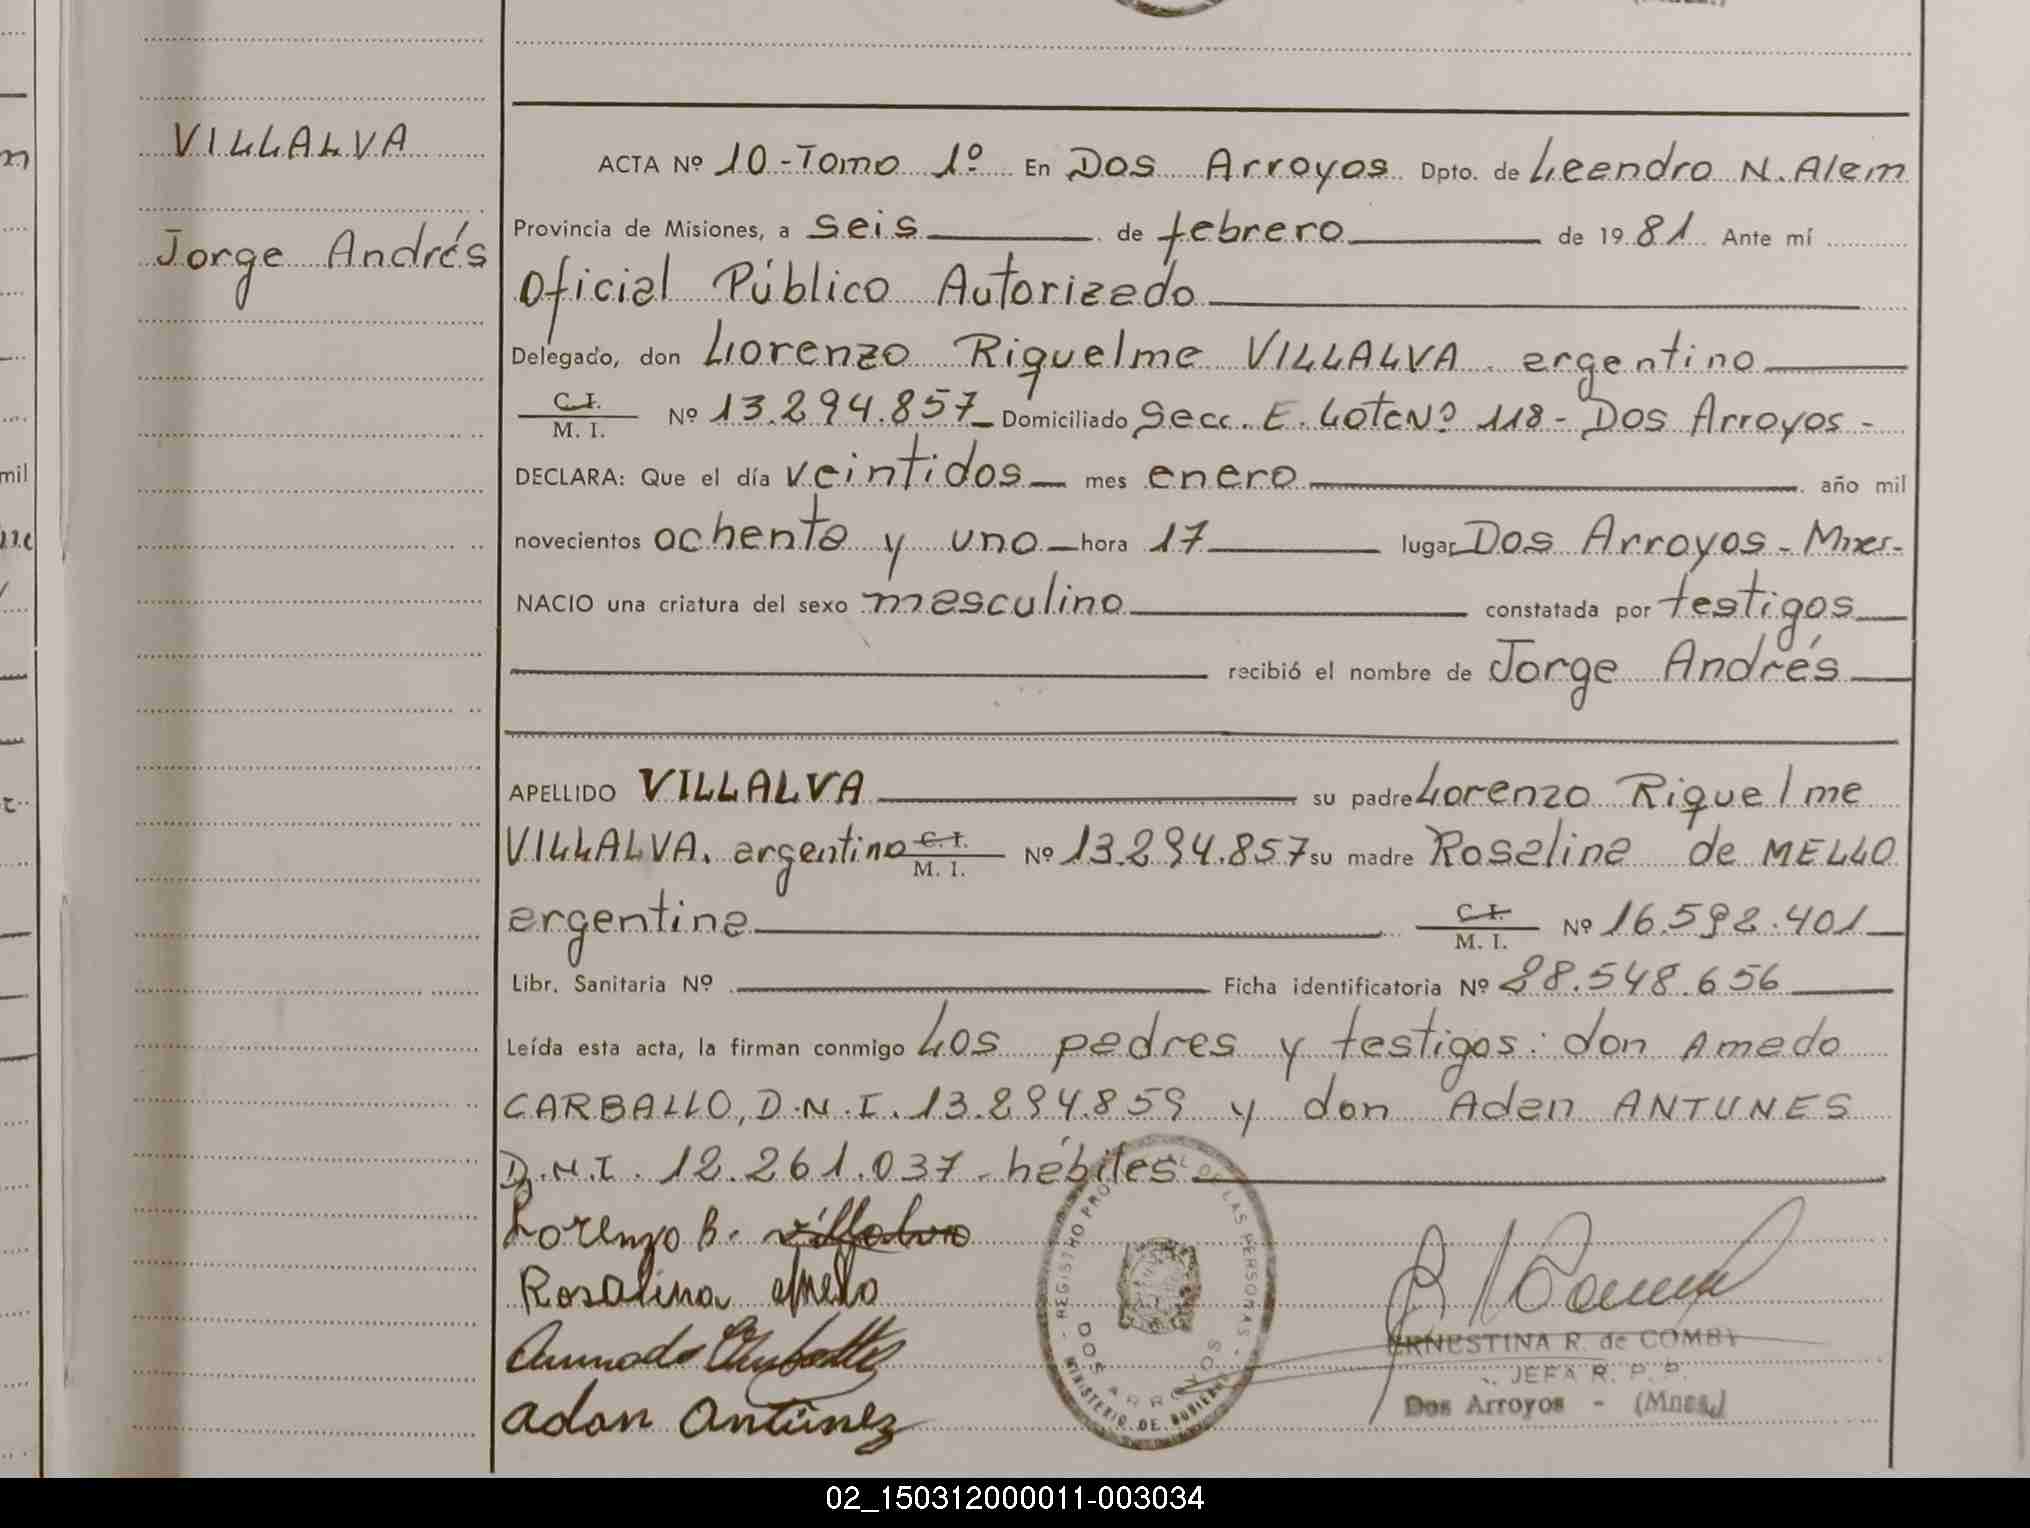 VILLALVA
Jorge Andrés
ACTA Nº 10-Tomo 1º En Dos Arroyos Dpto. de Leandro N. Alem
Provincia de Misiones, a seis de febrero de 1981 Ante mí
Oficial Público Autorizado
Delegado, don Lorenzo Riquelme VILLALVA. argentino
C. I.
M. I. Nº 13.294.857 Domiciliado Secc. E. Lote Nº 118 - Dos Arroyos -
DECLARA: Que el día veintidos mes enero año mil
novecientos ochenta y uno hora 17 lugar Dos Arroyos - Mnes-
NACIO una criatura del sexo masculino constatada por testigos
recibió el nombre de Jorge Andrés
APELLIDO VILLALVA su padre Lorenzo Riquelme
VILLALVA. argentino C. I. M. I. Nº 13.294.857 su madre Rosalina de MELLO
argentina C. I. M. I. Nº 16.592.401
Libr. Sanitaria Nº Ficha identificatoria Nº 28.548.656
Leída esta acta, la firman conmigo Los padres y testigos: don Amado
CARBALLO, D.N.I. 13.294.859 y don Adan ANTUNES
D.N.I. 12.261.037 - hábiles
Lorenzo R. Villalva
Rosalina Mello
Amado
adan Antunez
REGISTRO PROVINCIAL DE LAS PERSONAS
DOS ARROYOS
MINISTERIO DE GOBIERNO
ERNESTINA R. de COMBY
JEFA R. P. P.
Dos Arroyos - (Mnes.)
02_150312000011-003034